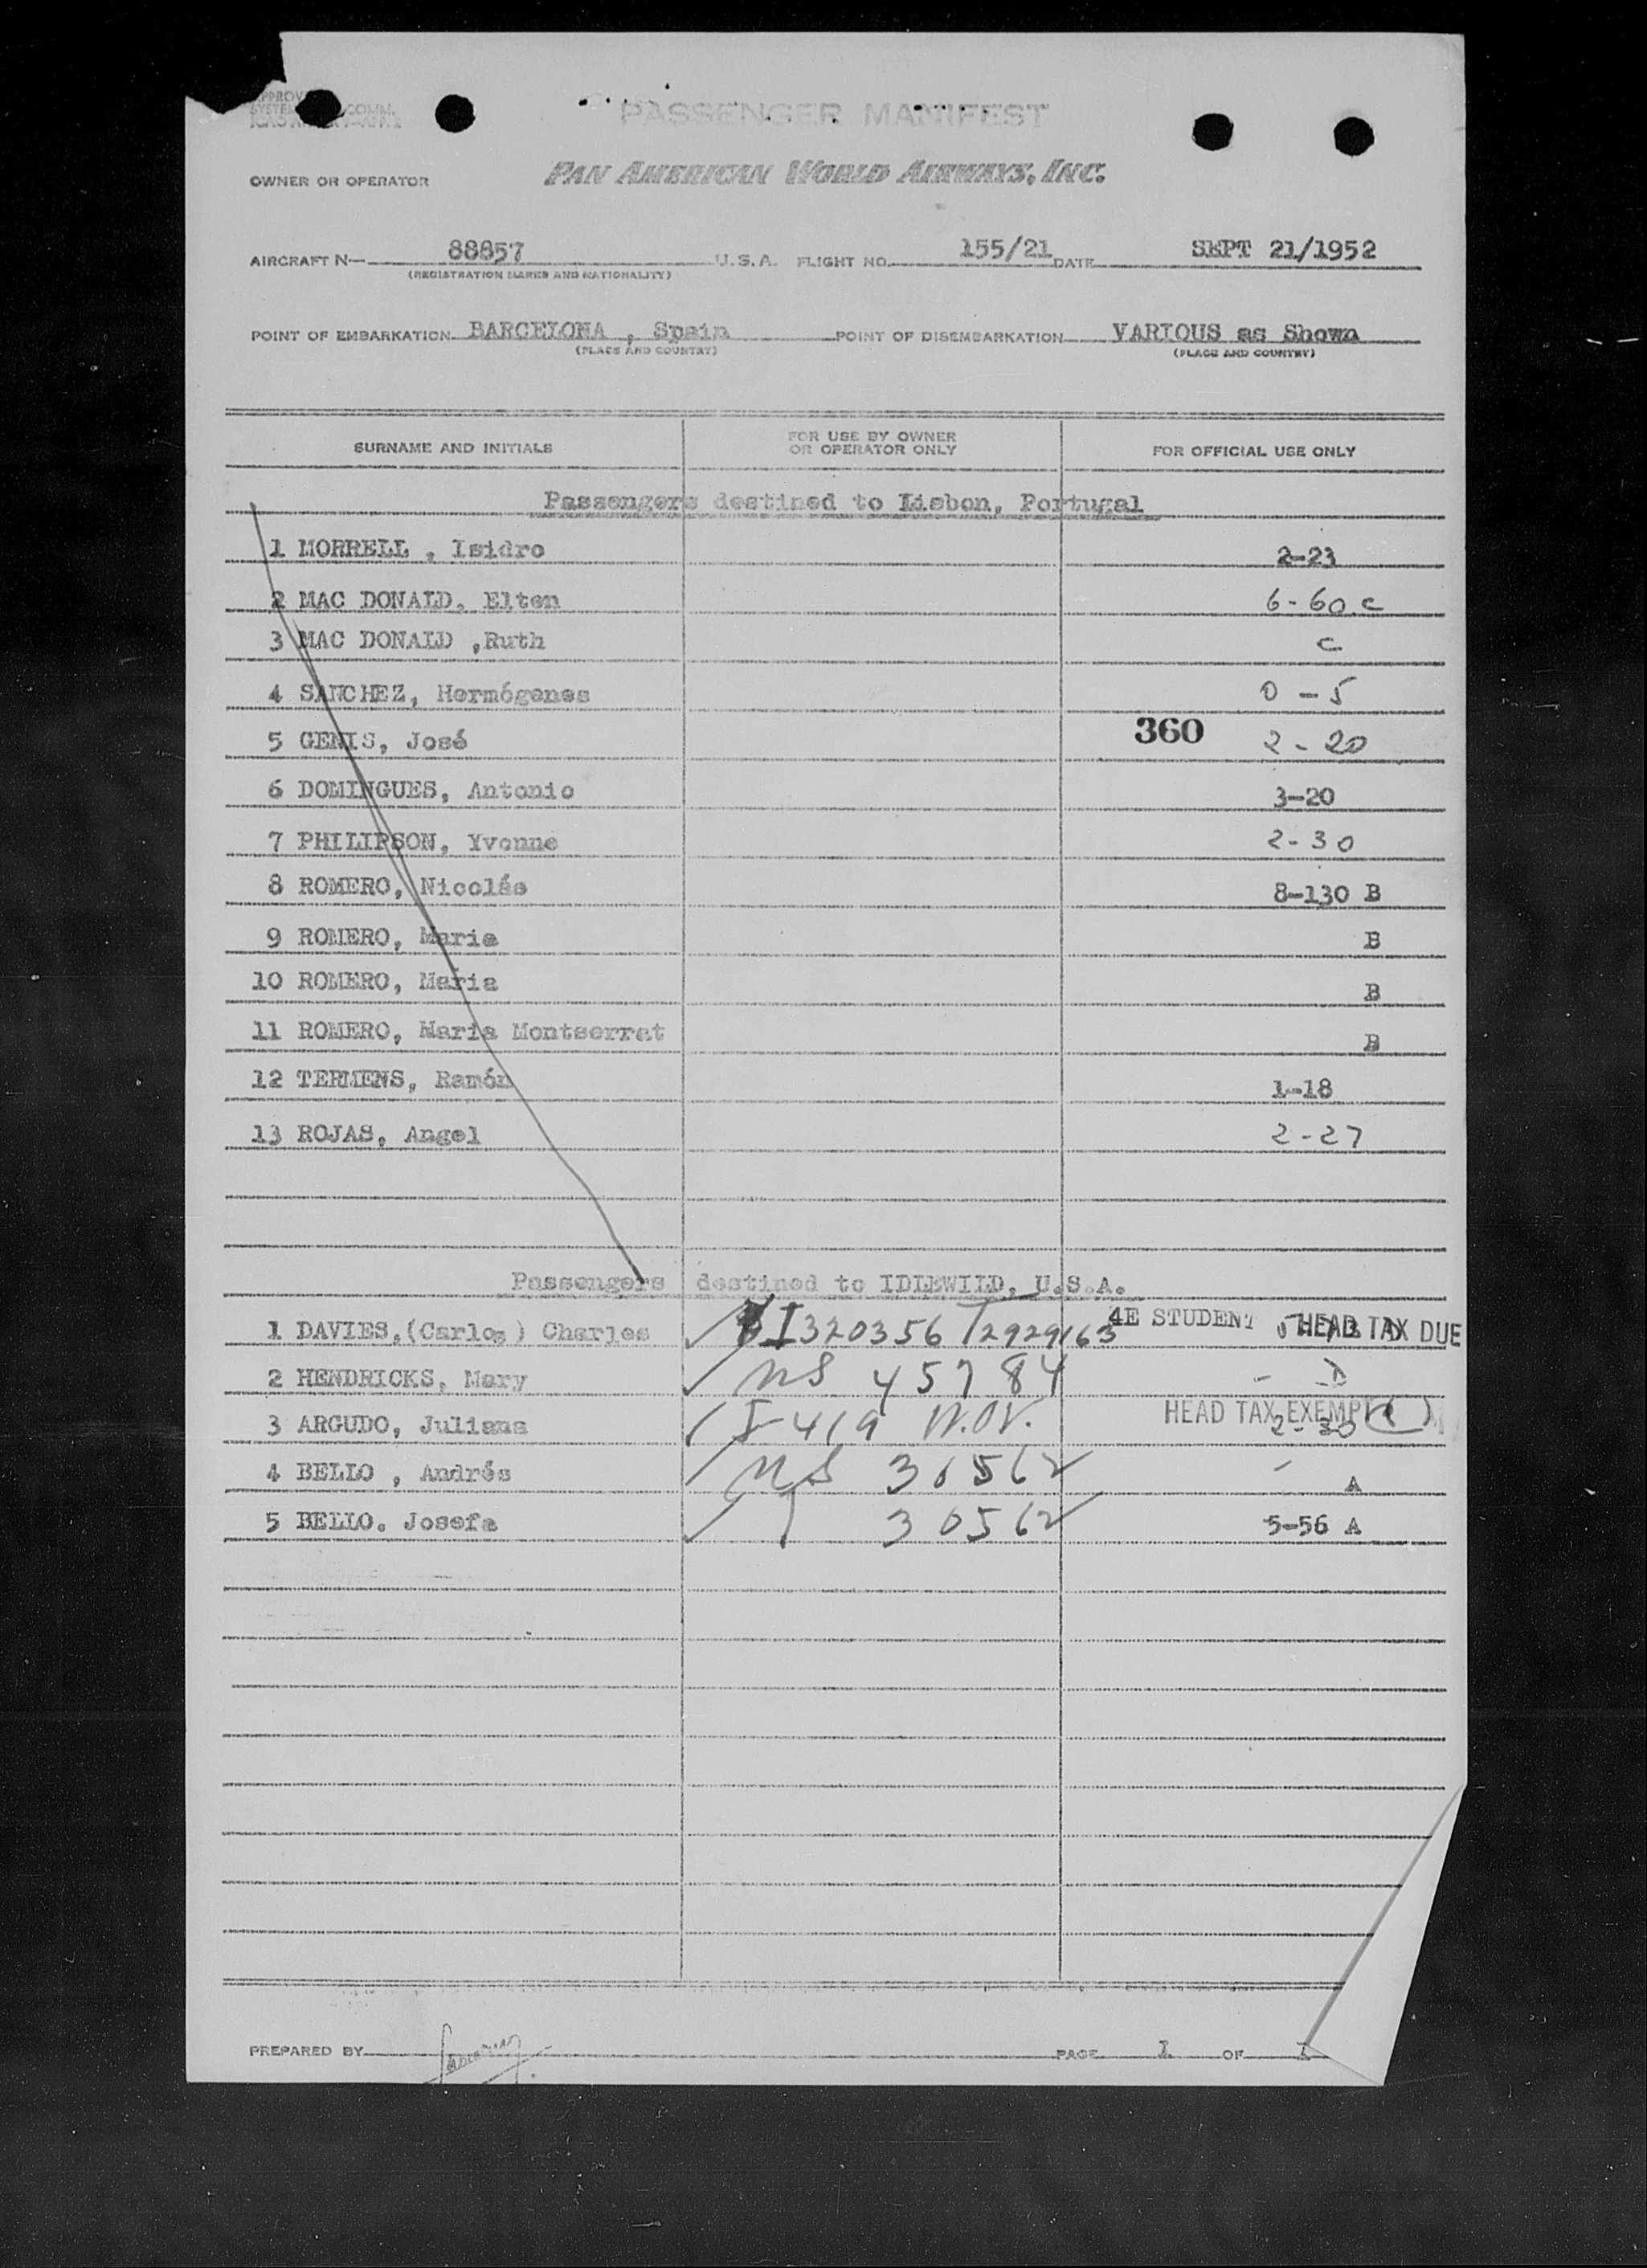 PASSENGER MANIFEST
OWNER OR OPERATOR PAN AMERICAN WORLD AIRWAYS, INC.
AIRCRAFT N— 88857 U.S.A. FLIGHT NO. 155/21 DATE SEPT 21/1952
(REGISTRATION MARKS AND NATIONALITY)
POINT OF EMBARKATION BARCELONA , Spain POINT OF DISEMBARKATION VARIOUS as Shown
(PLACE AND COUNTRY) (PLACE AND COUNTRY)
SURNAME AND INITIALS FOR USE BY OWNER OR OPERATOR ONLY FOR OFFICIAL USE ONLY
Passengers destined to Lisbon, Portugal
1 MORRELL , Isidro 2-23
2 MAC DONALD, Elten 6-60 C
3 MAC DONALD ,Ruth C
4 SANCHEZ, Hermógenes 0 - 5
5 GENIS, José 360 2 - 20
6 DOMINGUES, Antonio 3-20
7 PHILIPSON, Yvonne 2-30
8 ROMERO, Nicolás 8-130 B
9 ROMERO, Maria B
10 ROMERO, Maria B
11 ROMERO, Maria Montserrat B
12 TERMENS, Ramón 1-18
13 ROJAS, Angel 2-27
Passengers destined to IDLEWILD, U.S.A.
1 DAVIES,(Carlos) Charles I 320356 T2929163 4E STUDENT HEAD TAX DUE
2 HENDRICKS, Mary NS 45784 - D
3 ARGUDO, Juliana I-419 HEAD TAX EXEMPT ( ) 2-30
4 BELLO , Andrés NS 30562 - A
5 BELLO. Josefa 30562 5-56 A
PREPARED BY PAGE 1 OF 1